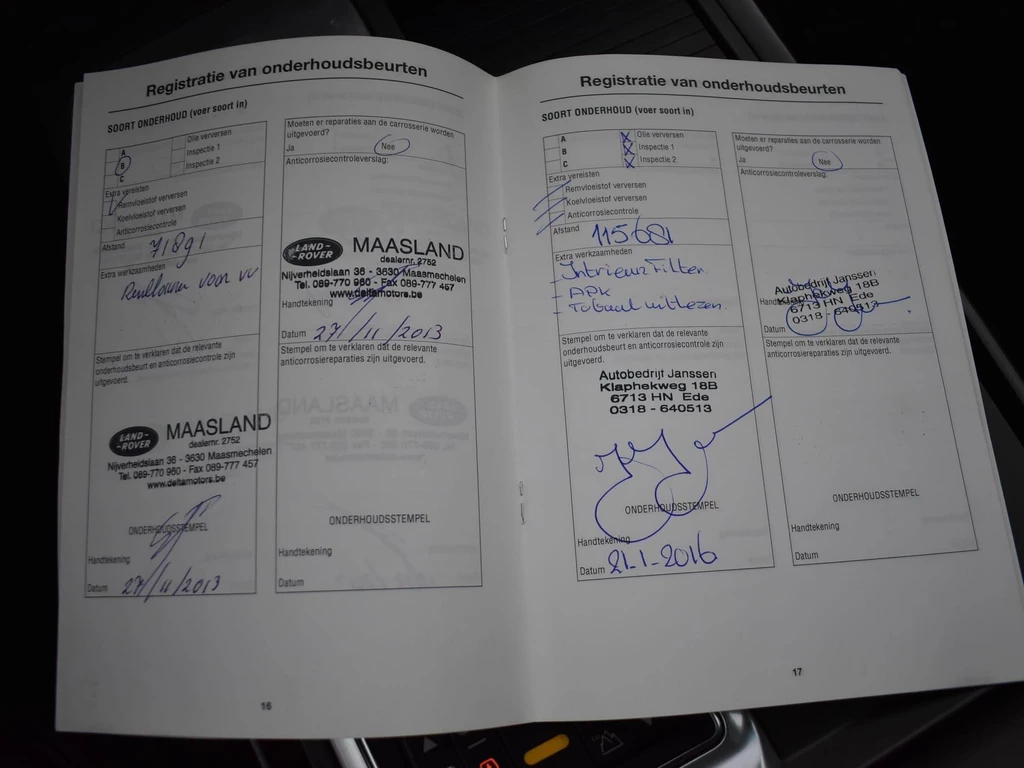 Registratie van onderhoudsbeurten
SOORT ONDERHOUD (voer soort in)
A
B
C
Olie verversen
Inspectie 1
Inspectie 2
Extra vereisten
Remvloeistof verversen
Koelvloeistof verversen
Anticorrosiecontrole
Afstand 71891
Extra werkzaamheden
voor
Stempel om te verklaren dat de relevante
onderhoudsbeurt en anticorrosiecontrole zijn
uitgevoerd.
LAND-
ROVER
MAASLAND
dealernr. 2752
Nijverheidslaan 36 - 3630 Maasmechelen
Tel. 089-770 960 - Fax 089-777 457
www.deltamotors.be
ONDERHOUDSSTEMPEL
Handtekening
Datum 27/11/2013
Moeten er reparaties aan de carrosserie worden
uitgevoerd?
Ja Nee
Anticorrosiecontroleverslag:
LAND-
ROVER
MAASLAND
dealernr. 2752
Nijverheidslaan 36 - 3630 Maasmechelen
Tel. 089-770 960 - Fax 089-777 457
www.deltamotors.be
Handtekening
Datum 27/11/2013
Stempel om te verklaren dat de relevante
anticorrosiereparaties zijn uitgevoerd.
ONDERHOUDSSTEMPEL
Handtekening
Datum
16
Registratie van onderhoudsbeurten
SOORT ONDERHOUD (voer soort in)
A
B
C
Olie verversen
Inspectie 1
Inspectie 2
Extra vereisten
Remvloeistof verversen
Koelvloeistof verversen
Anticorrosiecontrole
Afstand 115681
Extra werkzaamheden
- Intrieur Filter.
- APK
- Totaal uitlezen.
Stempel om te verklaren dat de relevante
onderhoudsbeurt en anticorrosiecontrole zijn
uitgevoerd.
Autobedrijf Janssen
Klaphekweg 18B
6713 HN Ede
0318 - 640513
ONDERHOUDSSTEMPEL
Handtekening
Datum 21-1-2016
Moeten er reparaties aan de carrosserie worden
uitgevoerd?
Ja Nee
Anticorrosiecontroleverslag:
Autobedrijf Janssen
Klaphekweg 18B
6713 HN Ede
0318 - 640513
Datum
Stempel om te verklaren dat de relevante
anticorrosiereparaties zijn uitgevoerd.
ONDERHOUDSSTEMPEL
Handtekening
Datum
17